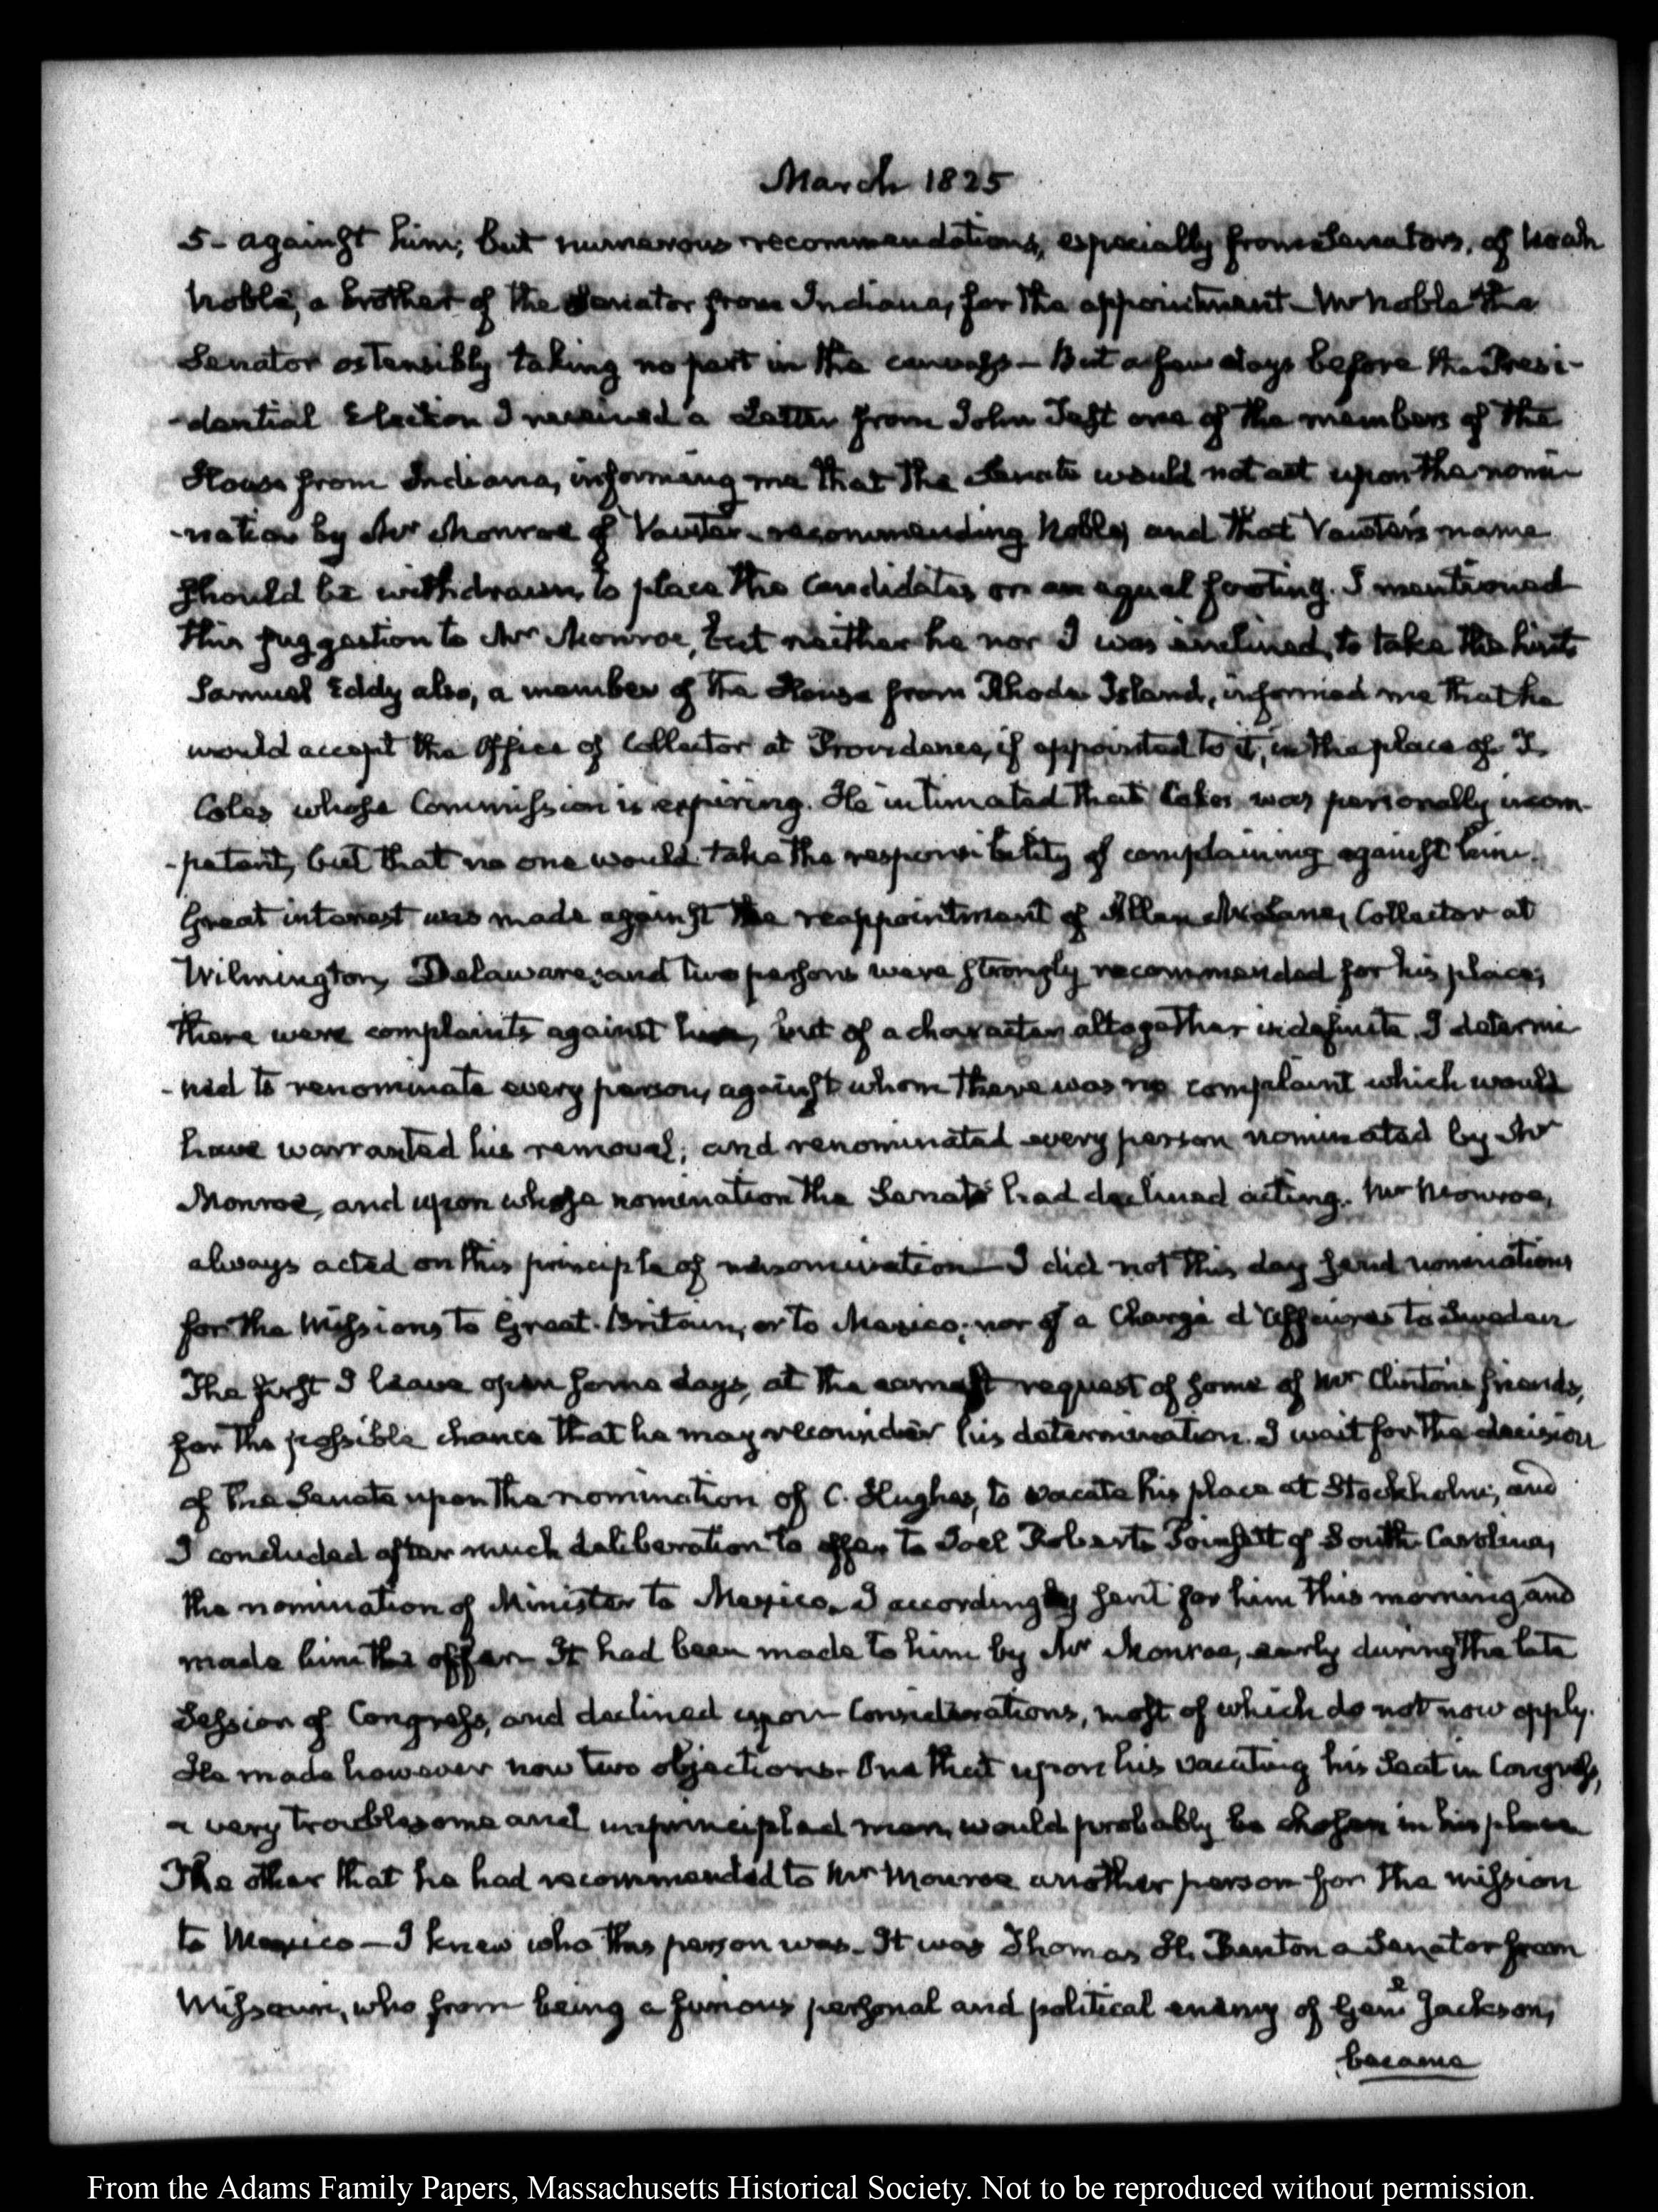 March 1825
5- against him; but numerous recommendations, especially from Senators, of Noah
Noble, a brother of the Senator from Indiana, for the appointment — Mr Noble the
Senator ostensibly taking no part in the canvass — But a few days before the Presi-
-dential Election I received a Letter from John Test one of the members of the
House from Indiana, informing me that the Senate would not act upon the nomi-
-nation by Mr Monroe of Vawter — recommending Noble, and that Vawter's name
should be withdrawn, to place the Candidates on an equal footing. I mentioned
this suggestion to Mr Monroe, but neither he nor I was inclined, to take the hint.
Samuel Eddy also, a member of the House from Rhode Island, informed me that he
would accept the Office of Collector at Providence, if appointed to it, in the place of T.
Coles whose Commission is expiring. He intimated that Coles was personally incom-
-petent, but that no one would take the responsibility of complaining against him.
Great interest was made against the reappointment of Allan McLane, Collector at
Wilmington, Delaware; and two persons were strongly recommended for his place;
there were complaints against him, but of a character altogether indefinite. I determi
-ned to renominate every person, against whom there was no complaint which would
have warranted his removal; and renominated every person nominated by Mr
Monroe, and upon whose nomination the Senate had declined acting. Mr Monroe,
always acted on this principle of renomination — I did not this day send nominations
for the Missions to Great-Britain, or to Mexico; nor of a Chargé d'Affaires to Sweden
The first I leave open some days, at the earnest request of some of Mr Clinton's friends,
for the possible chance that he may reconsider his determination. I wait for the decision
of the Senate upon the nomination of C. Hughes, to vacate his place at Stockholm; and
I concluded after much deliberation to offer to Joel Roberts Poinsett of South-Carolina,
the nomination of Minister to Mexico. I accordingly sent for him this morning, and
made him the offer — It had been made to him by Mr Monroe, early during the late
Session of Congress, and declined upon Considerations, most of which do not now apply.
He made however now two objections. One that upon his vacating his Seat in Congress,
a very troublesome and unprincipled man, would probably be chosen in his place
The other that he had recommended to Mr Monroe another person for the mission
to Mexico — I knew who this person was. It was Thomas H. Benton a Senator from
Missouri, who from being a furious personal and political enemy of Genl Jackson,
became
From the Adams Family Papers, Massachusetts Historical Society. Not to be reproduced without permission.